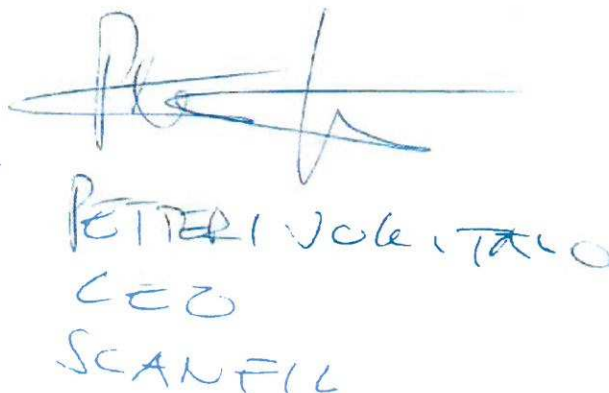 PETTERI JOKITALO
CEO
SCANFIL